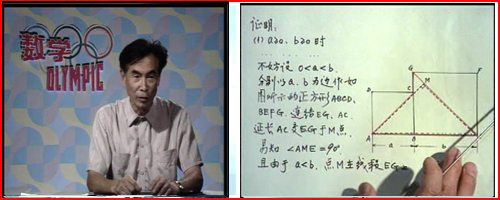 数学
OLYMPIC
证明:
(1) a≥0、b≥0 时
不妨设 0<a<b.
分别以 a、b 为边作如
图所示的正方形ABCD、
BEFG. 连结EG、AC.
延长AC交EG于M点.
易知 ∠AME=90°
且由于 a<b, 点M在线段EG上
G
F
M
D
C
A
B
a
b